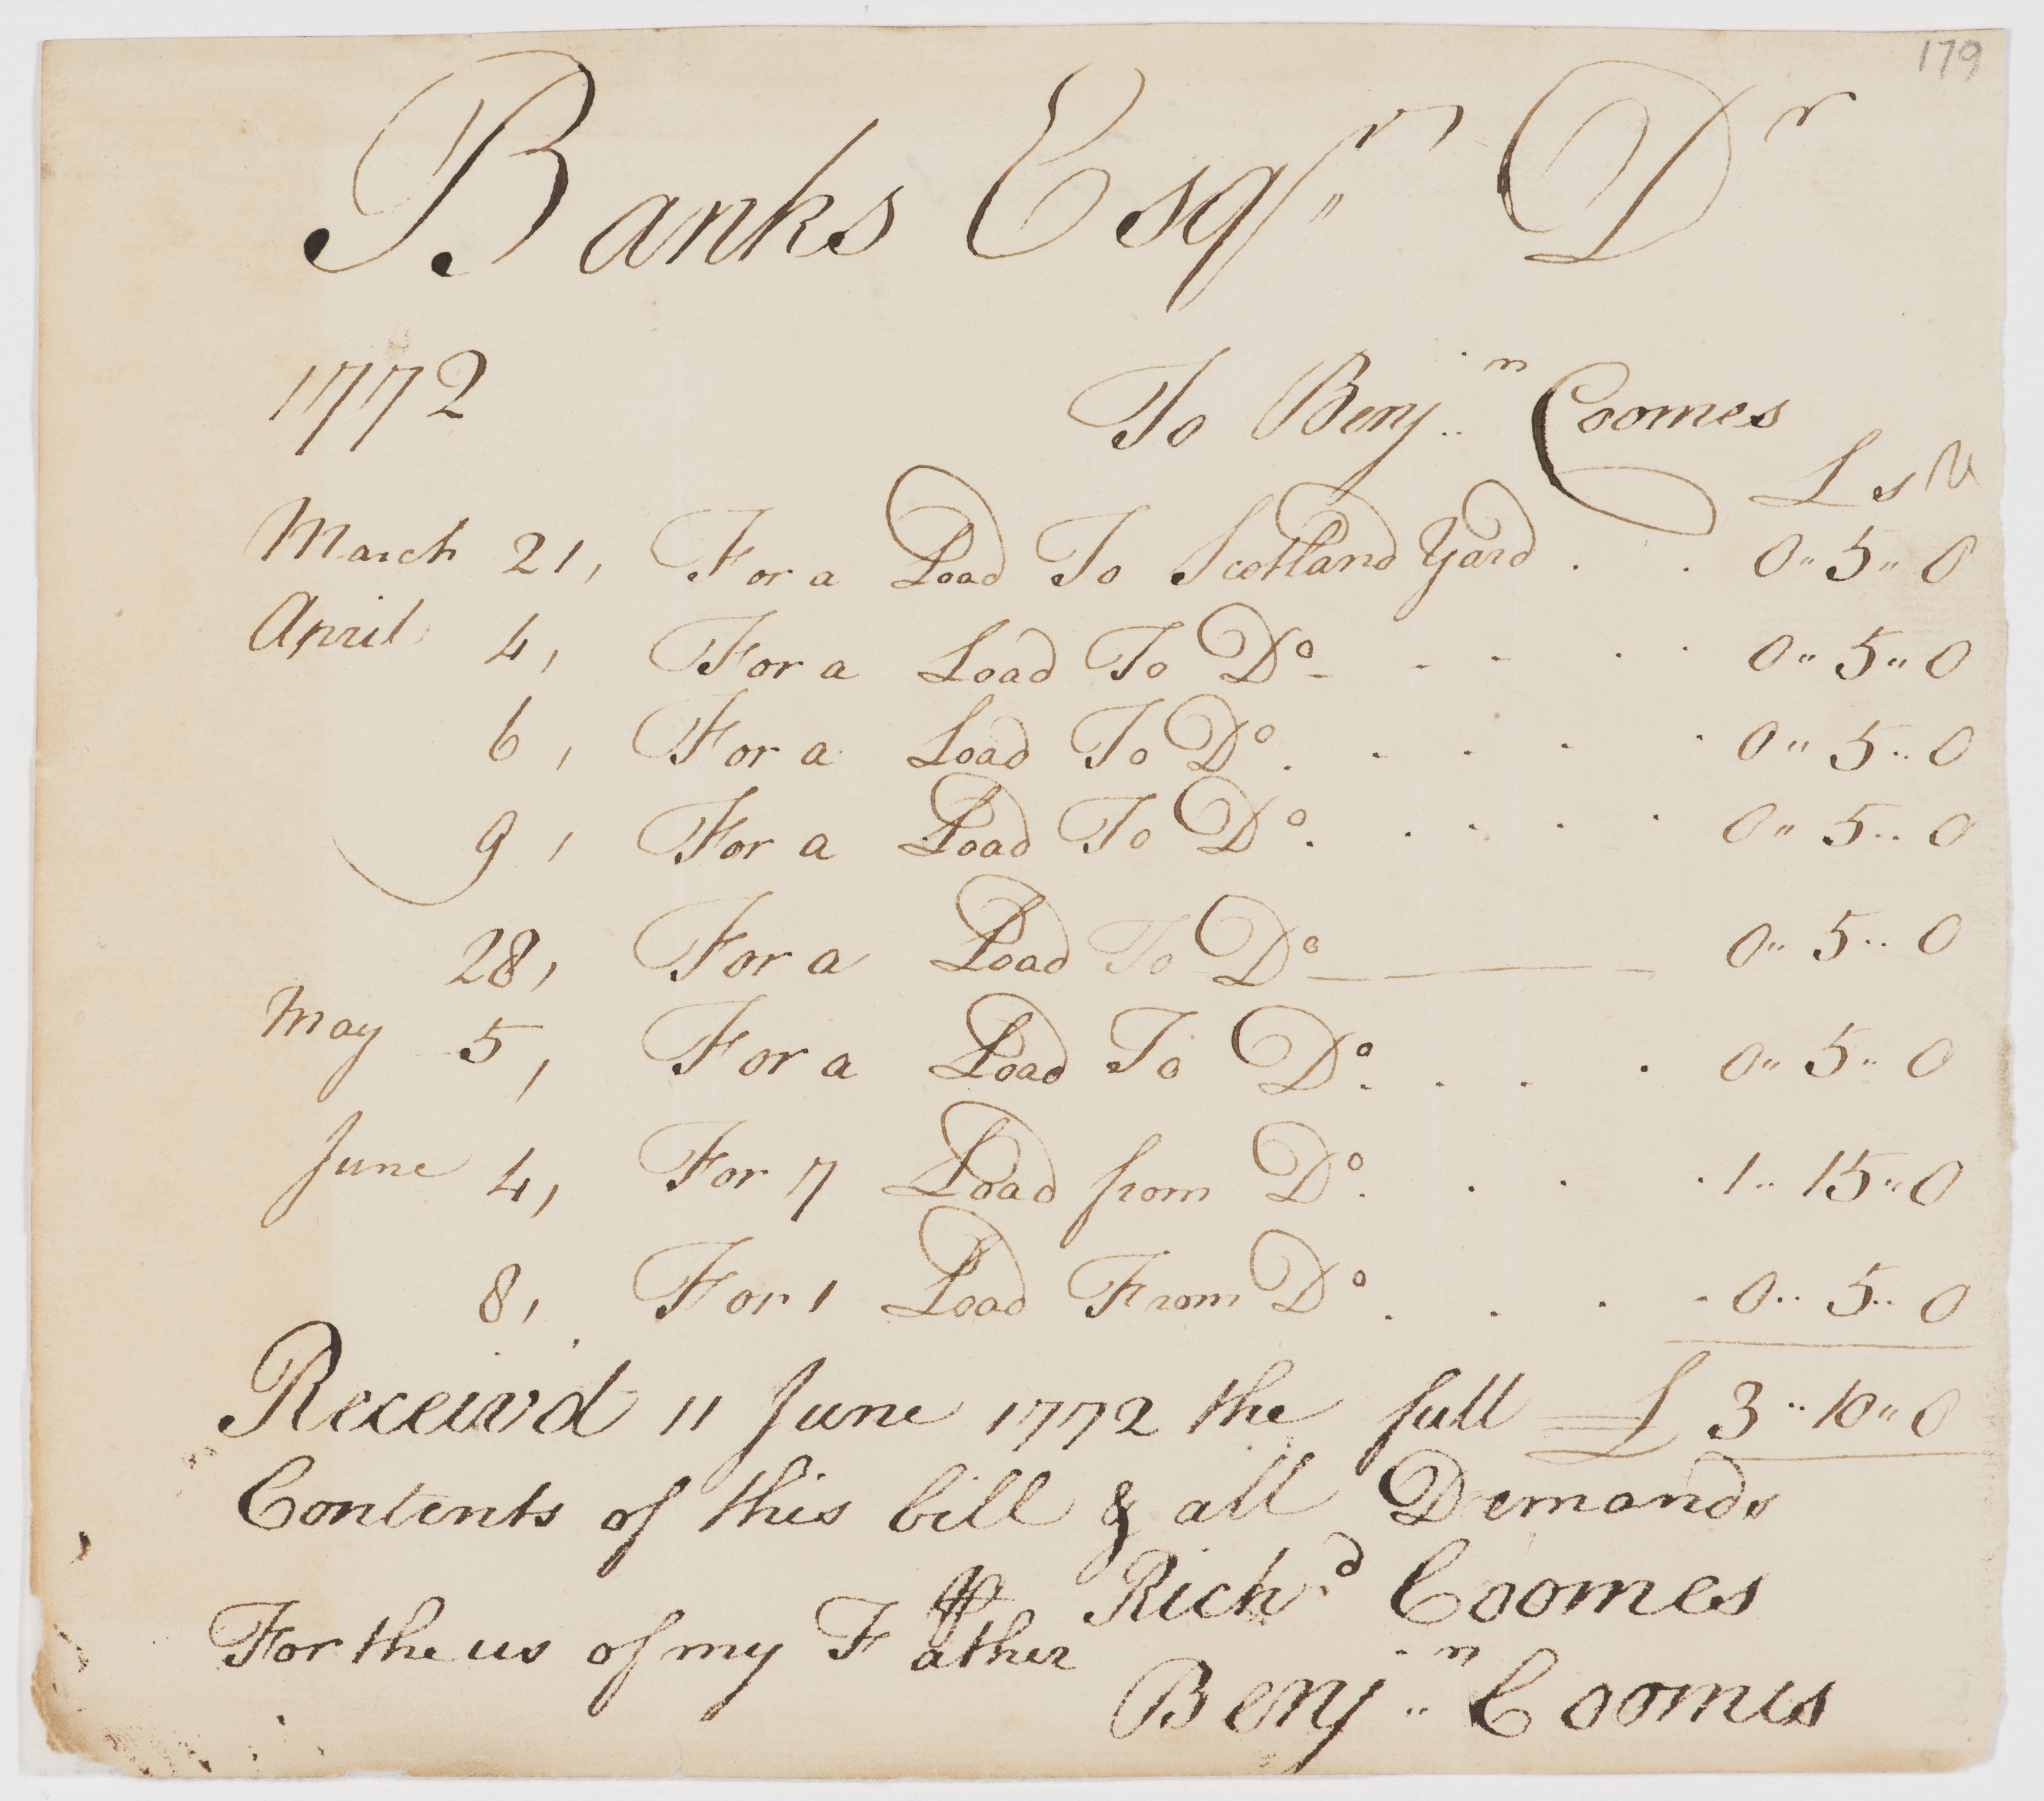 179
Banks Esqr Dr
1772 To Benjn Coomes
L s d
March 21, For a Load To Scotland Yard . . 0" 5" 0
April 4, For a Load To Do - - - . . 0" 5" 0
6, For a Load To Do . . . . . 0" 5" 0
9, For a Load To Do . . . . . 0" 5" 0
28, For a Load To Do 0" 5" 0
May 5, For a Load To Do . . . . 0" 5" 0
June 4, For 7 Load from Do . . . . 1" 15" 0
8, For 1 Load From Do . . . . 0" 5" 0
Receiv'd 11 June 1772 the full £ 3" 10" 0
Contents of this bill & all Demands
Richd Coomes
For the us of my Father
Benjn Coomes